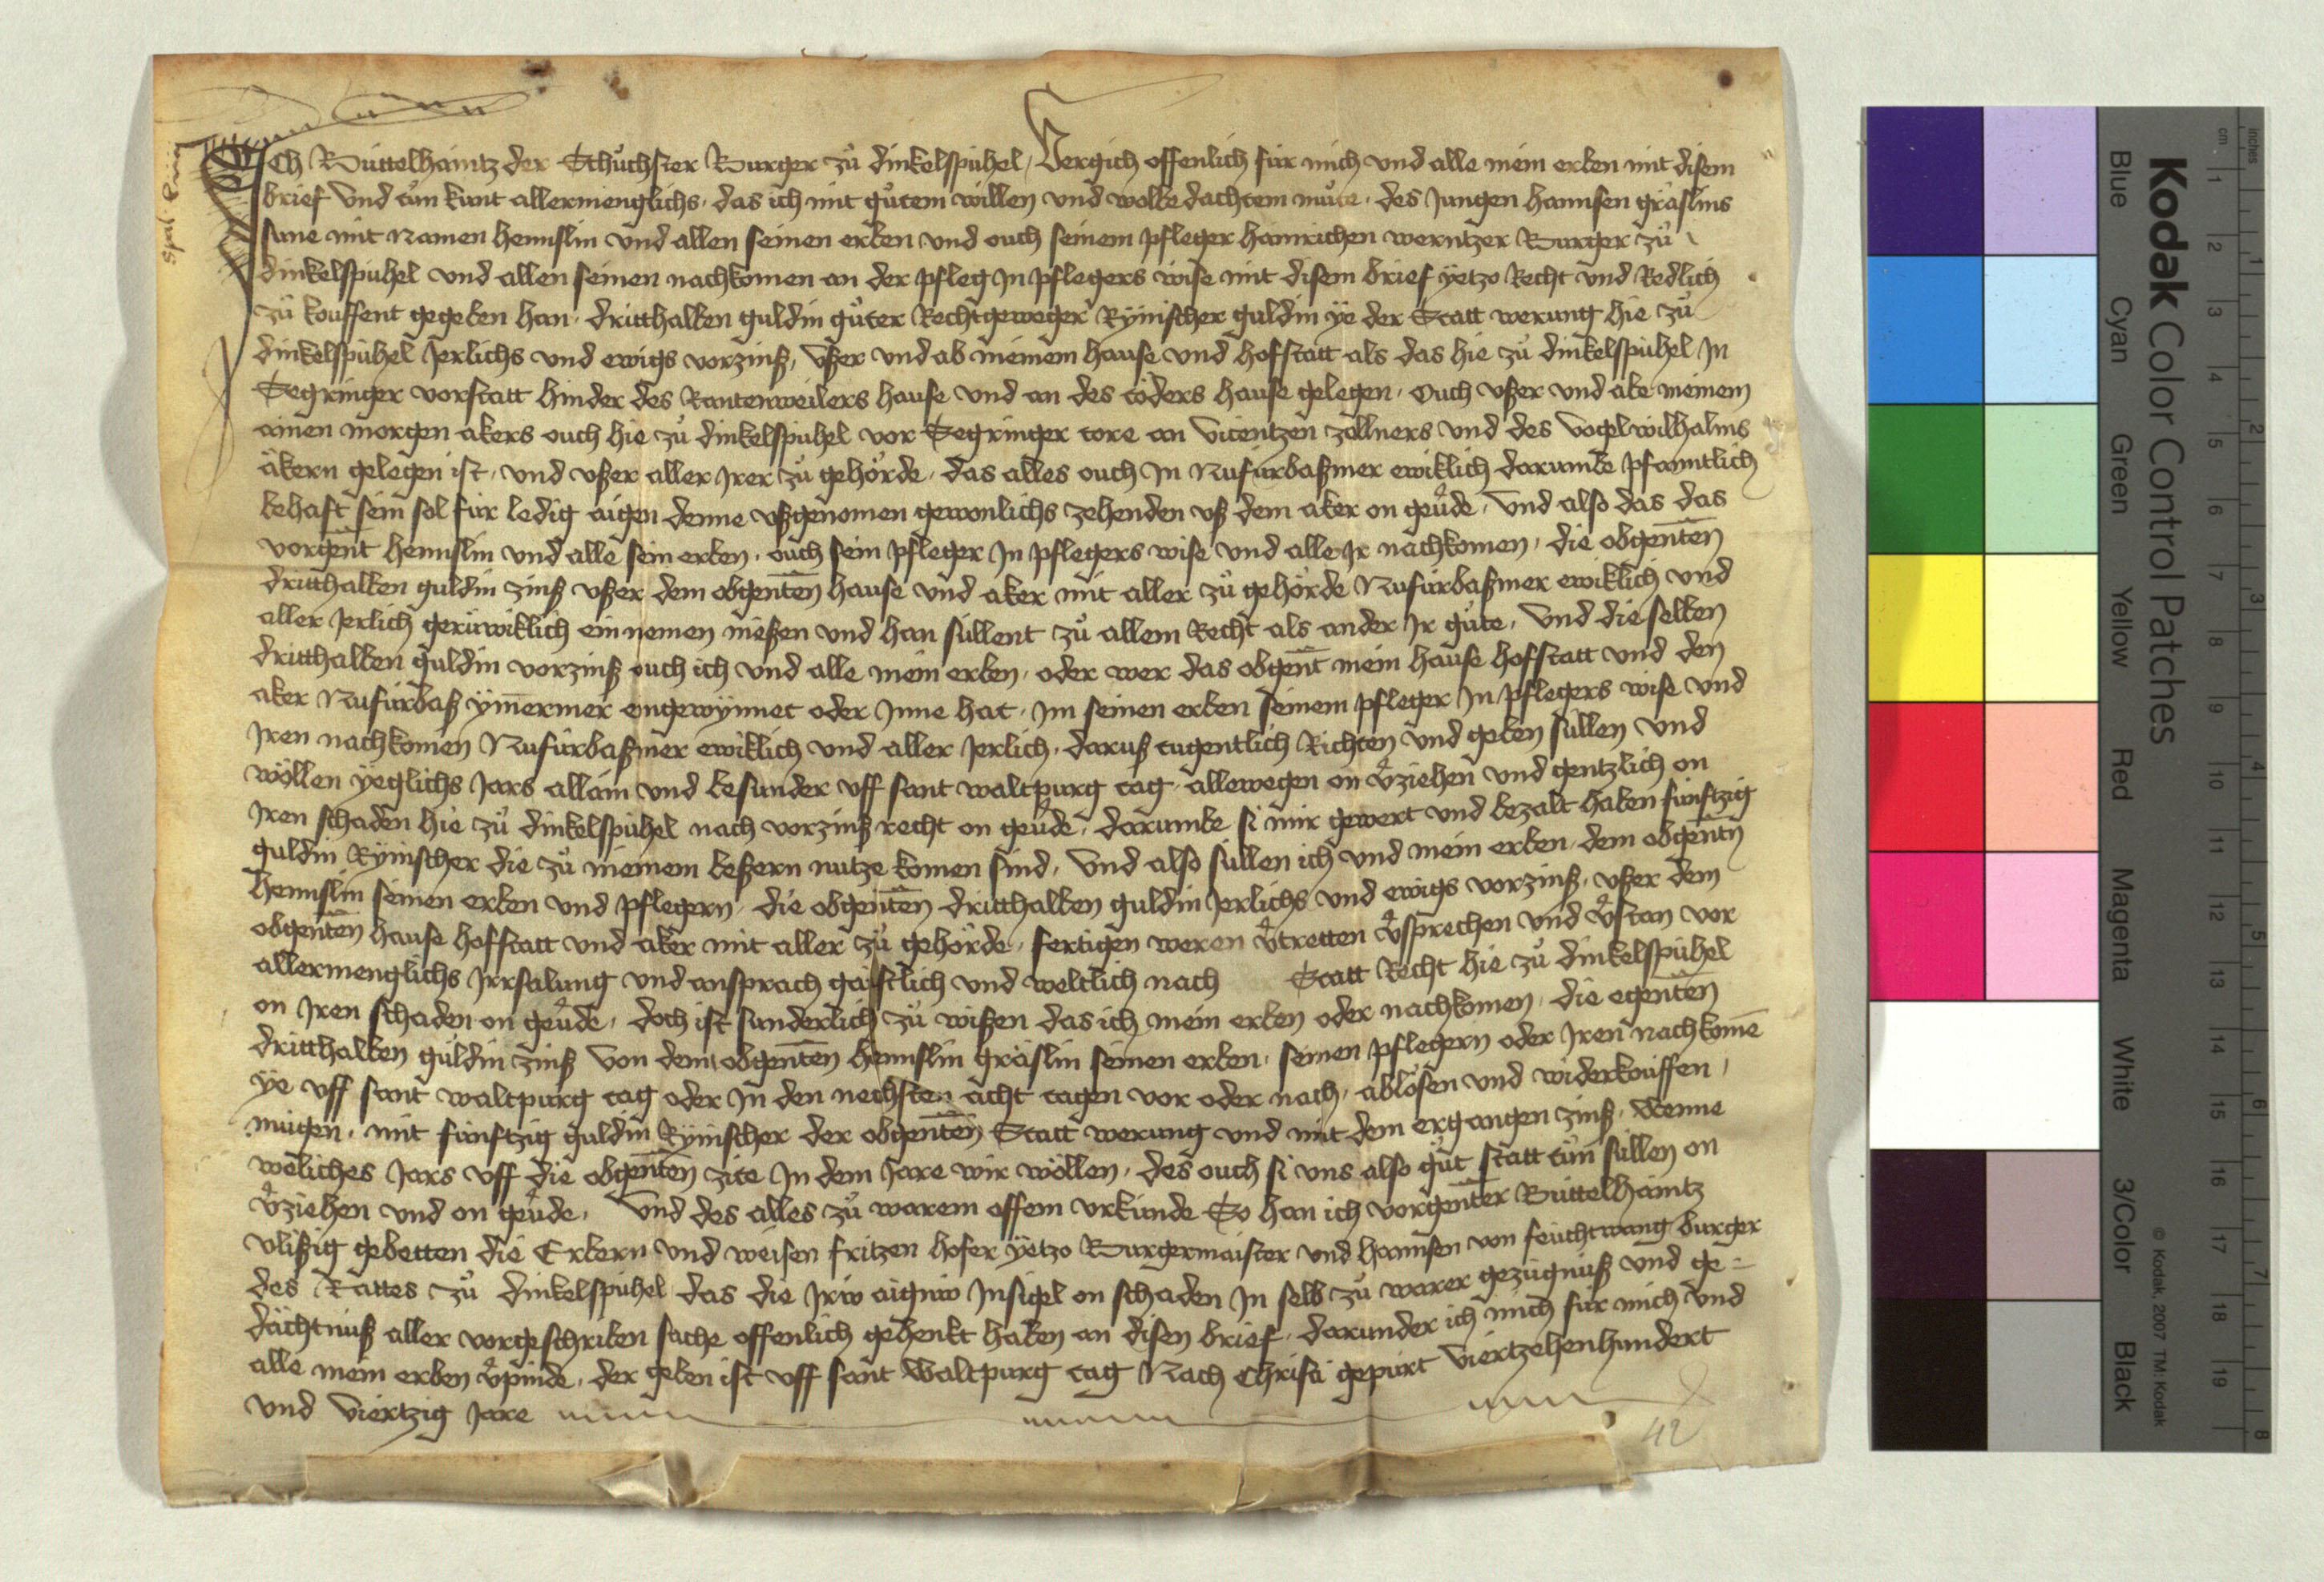 Ich Büttelhaintz der Schůchster Burger zů dinkelspühel, Vergich offenlich für mich und alle mein erben mit disem
brief Und tůn kunt allermenglichs, das ich mit gůtem willen und wolbedachtem můte, des Jungen hannsen gräslins
sune mit namen hennslin und allen seinen erben und ouch seinem pfleger hainrichen werntzer Burger zů
dinkelspühel und allen seinen nachkomen an der pfleg In pflegers wise mit disem brief yetzo Recht und Redlich
zů kouffent gegeben han, dritthalben guldin gůter Rechtgeweger Rÿnischer guldin ÿe der Statt werung hie zů
dinkelspühel Jerlichs und ewigs vorzinß, ußer und ab meinem hause und hofstatt als das hie zů dinkelspühel In
Segringer vorstatt hinder des Rantenweilers hause und an des töders hause gelegen, Ouch ußer und abe meinem
ainen morgen akers ouch hie zů dinkelspühel vor Segringer tore an vicentzen zollners und des vogelwilhalms
äkern gelegen ist, und ußer aller Irer zů gehörde, das alles ouch In Nufürbaßmer ewiklich darumbe pfanntlich
behaft sein sol für ledig aigen denne ußgenomen gewonlichs zehenden uß dem aker on geůde, Und also das das
vorgent hennslin und alle sein erben, ouch sein pfleger In pflegers wise und alle Ir nachkomen, die obgenten
dritthalben guldin zinß ußer dem obgenten hause und aker mit aller zů gehörde Nufürbaßmer ewiklich und
aller Jerlich gerüwiklich ein nemen nießen und han süllent zů allem Recht als ander Ir gůte, Und die selben
dritthalben guldin vorzinß ouch ich und alle mein erben, oder wer das obgent mein hause hofstatt und den
aker Nufürbaß ÿmermer ingewÿnnet oder Inne hat, Im seinen erben seinem pfleger In pflegers wise und
Iren nachkomen Nufürbaßmer ewiklich und aller Jerlich, daruß tugentlich Richten und geben süllen und
wöllen ÿeglichs Jars allain und besunder uff sant waltpurg tag allewegen on vziehen und gentzlich on
Iren schaden hie zů dinkelspühel nach vorzinß recht on geůde, darumbe si mir gewert und bezalt haben fünftzig
guldin Rÿnischer die zů meinem beßern nutze komen sind, Und also süllen ich und mein erben, dem obgentn
hennslin seinen erben und pflegern, die obgenten dritthalben guldin Jerlichs und ewigs vorzinß, ußer dem
obgenten hause hofstatt und aker mit aller zů gehörde, fertigen weren vtretten vsprechen und vstan vor
allermenglichs Irrsalung und ansprach gaistlich und weltlich nach Statt Recht hie zů dinkelspühel
on Iren schaden on geůde, doch ist sunderlich zů wißen das ich mein erben oder nachkomen, die egenten
dritthalben guldin zinß von dem obgenten hennslin gräslin seinen erben, seinen pflegern oder Iren nachkomē
ÿe uff sant waltpurg tag oder In den nechsten acht tagen vor oder nach, ablösen und widerkouffen,
mügen, mit fünftzig guldin Rÿnischer der obgenten Statt werung und mit dem ergangen zinß, Wenne
weliches Jars uff die obgenten zite In dem Jare wir wöllen, des ouch si uns also gůt statt tůn süllen on
vziehen und on geůde, Und des alles zů warem offem urkunde So han ich vorgenter Büttelhaintz
vlißig gebetten die Erbern und weisen fritzen hofer ÿetzo Burgermaister und hannsen von feuchtwang burger
des Rattes zů dinkelspühel das die Irw aigniw Insigel on schaden In selb zů warer gezügnuß und ge=
dächtnuß aller vorgeschriben sache offenlich gehenkt haben an disen brief, darunder ich mich für mich und
alle mein erben vpinde, der geben ist uff sant Waltpurg tag Nach Christi gepurt Viertzehenhundert
und Viertzig Jare
42
Kodak Color Control Patches
Blue Cyan Green Yellow Red Magenta White 3/Color Black
© Kodak, 2007 TM: Kodak
cm 1 2 3 4 5 6 7 8 9 10 11 12 13 14 15 16 17 18 19
inches 1 2 3 4 5 6 7 8